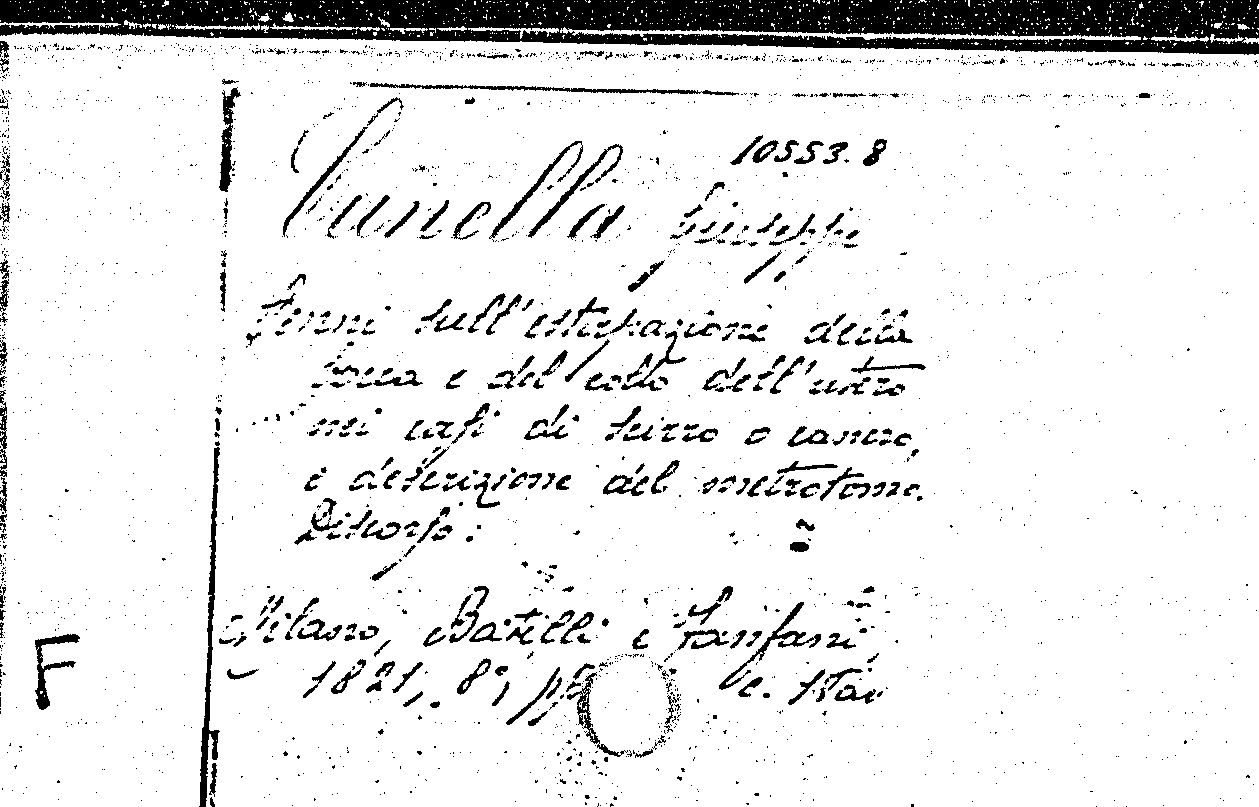 10553.8
Canella Giuseppe
Cenni sull'estirpazione della
bocca e del collo dell'utero
nei casi di scirro o cancro,
e descrizione del metrotomo.
Discorso:
Milano, Batelli e Fanfani,
F
1821, 8º, pp c. 1 tav